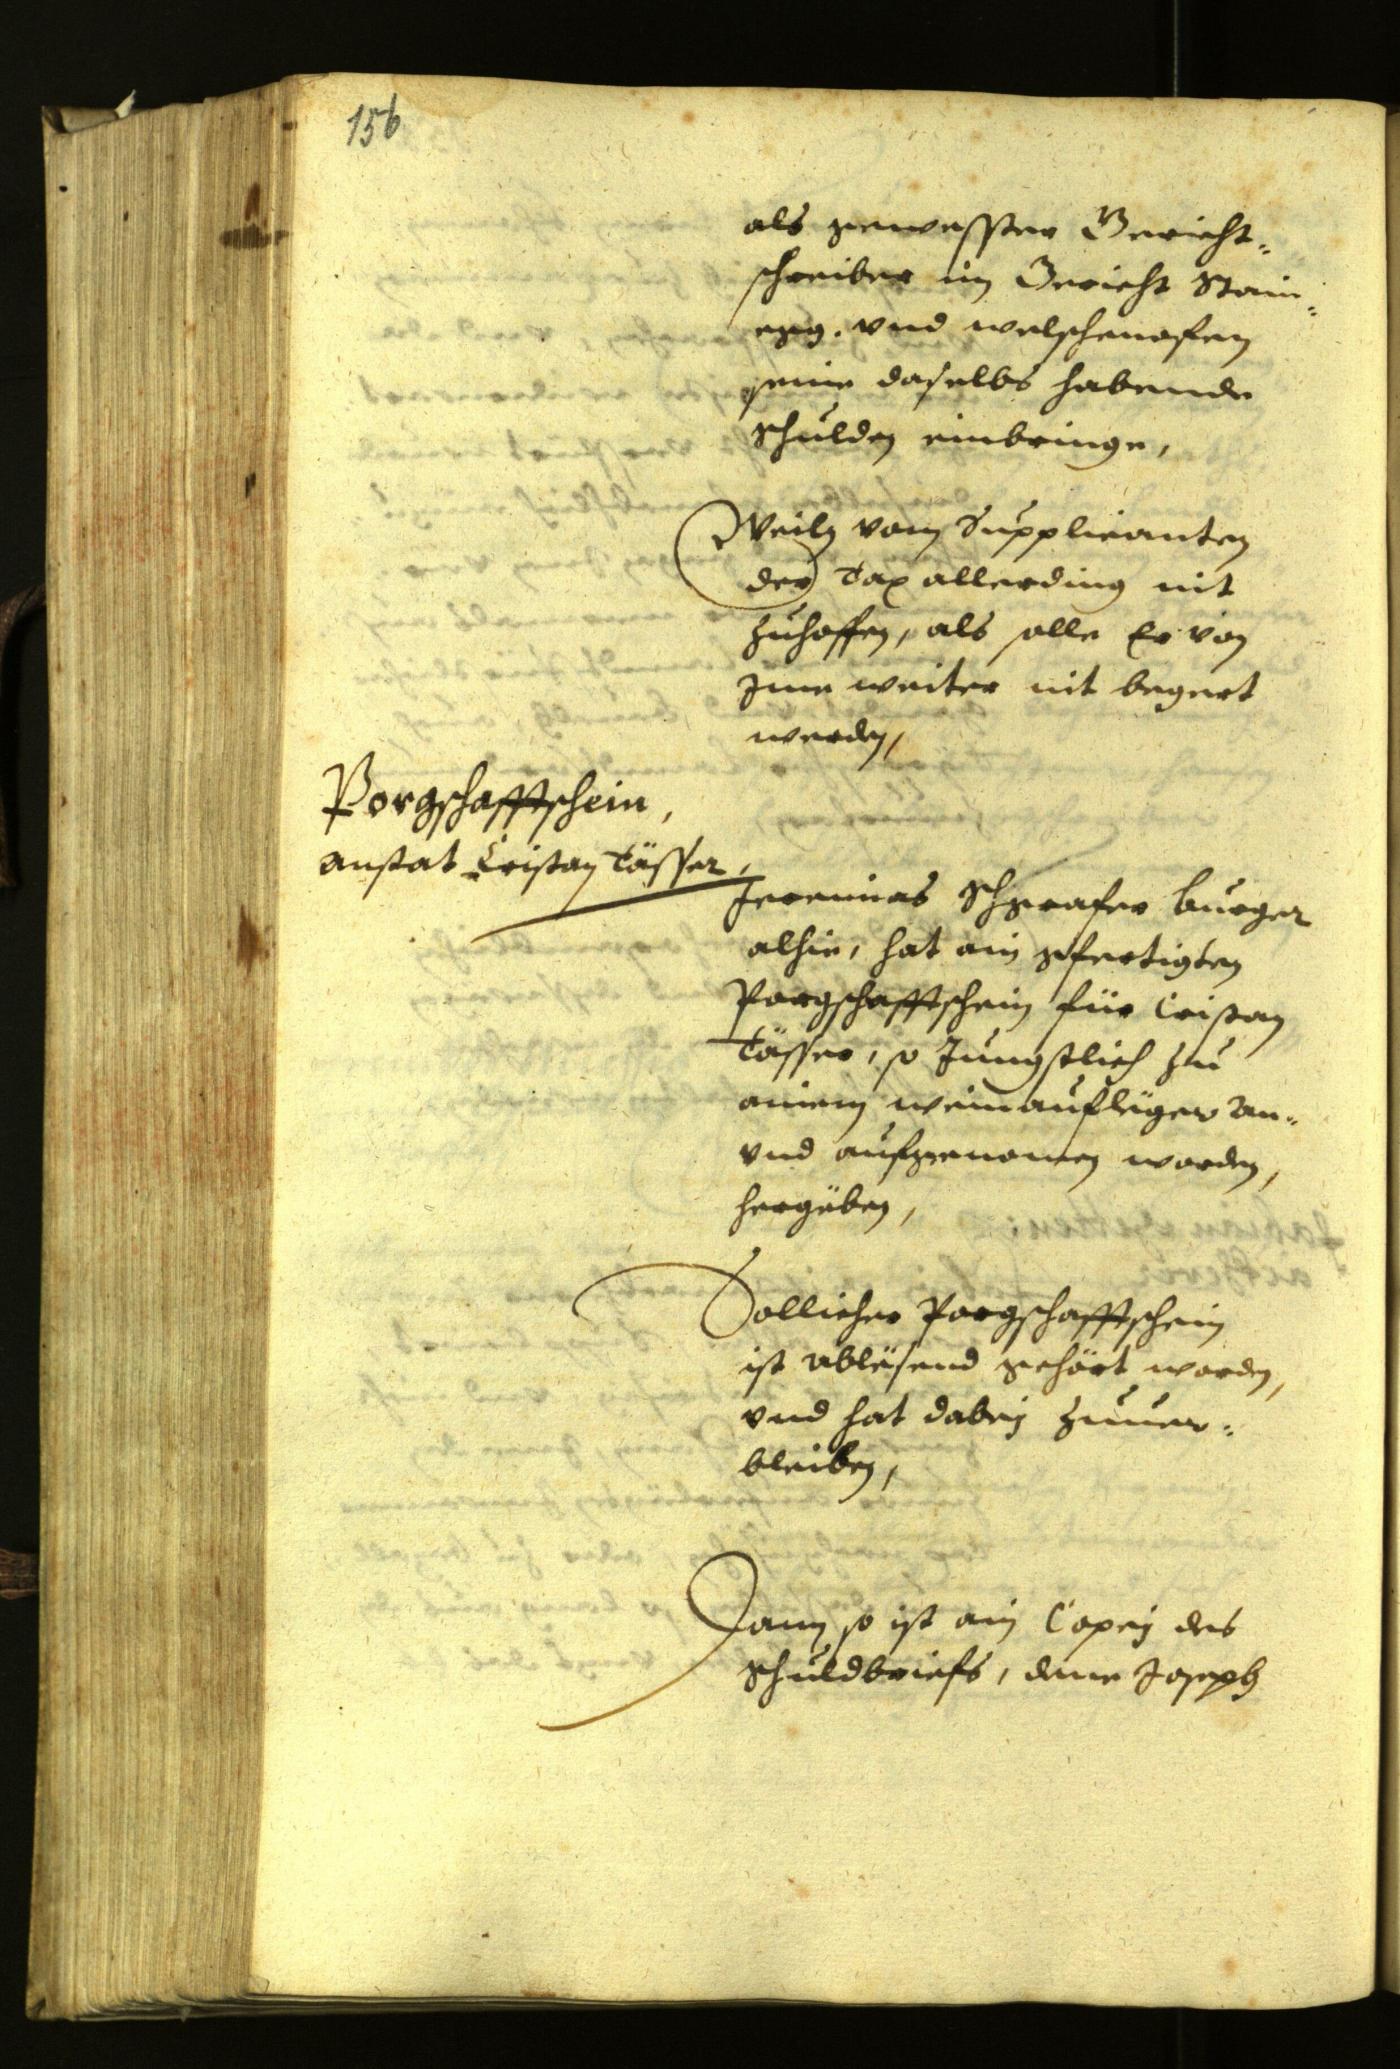 156
als gewesster Gericht¬
schreiber im Gericht Stain¬
egg. vnd welschenofen
seine daselbs habende
Schulden einbringe,
Weiln vom Supplicanten
der Tax allerding nit
zuhoffen, als solle Er von
Jme weiter nit begert
werden,
Porgschafftschein,
anstat Cristan Tässer,
Jeremias Schgrafer burger
alhie, hat ain gfertigten
Porgschafftschein für Cristan
Tässer, so Jungstlich zu
ainem weinaufleger an¬
vnd aufgenomen worden,
hergeben,
Sollicher Porgschafftschein
ist ablesend gehört worden,
vnd hat dabej zuuer¬
bleiben,
Dann so ist ain Copej des
Schuldbriefs, dene Joseph